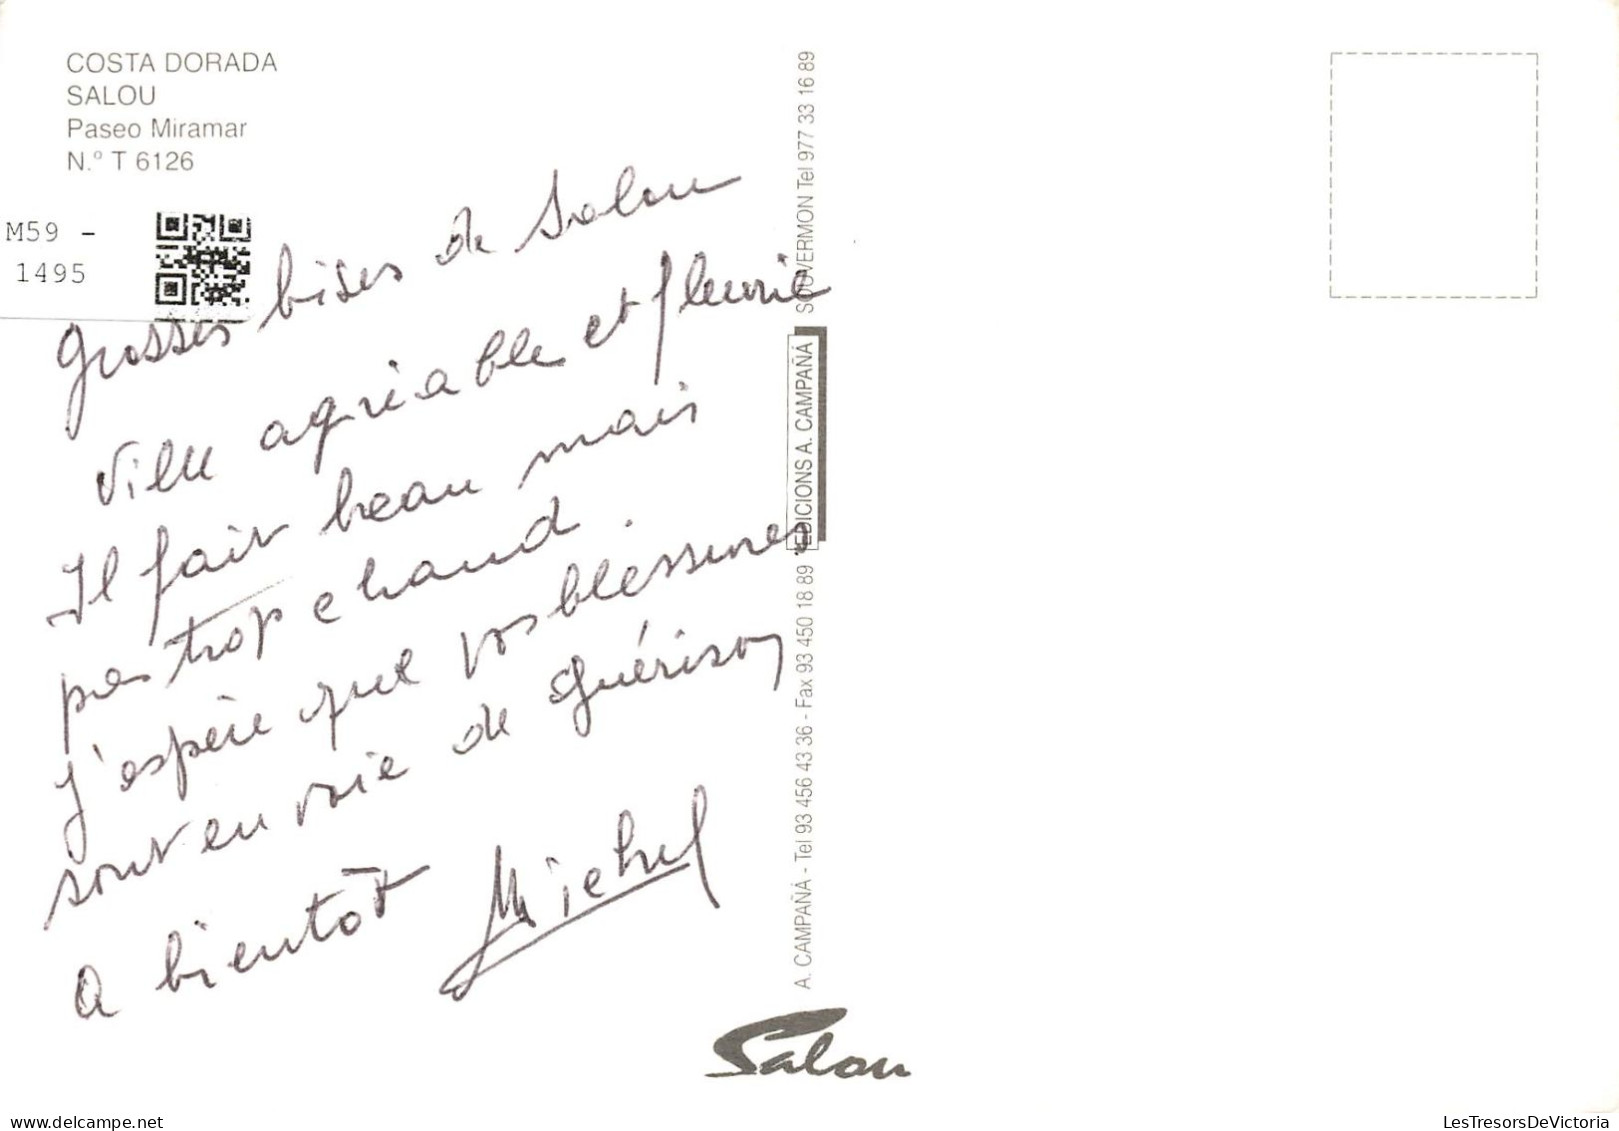 COSTA DORADA
SALOU
Paseo Miramar
N.º T 6126
M59 -
1495
Grosses bises de Salou
Ville agréable et fleurie
Il fait beau mais
pas trop chaud.
J'espère que vos blessures
sont en voie de guérison
A bientôt Michel
A. CAMPAÑÀ - Tel 93 456 43 36 - Fax 93 450 18 89 EDICIONS A. CAMPAÑÀ SOUVERMON Tel 977 33 16 89
Salou
LesTresorsDeVictoria